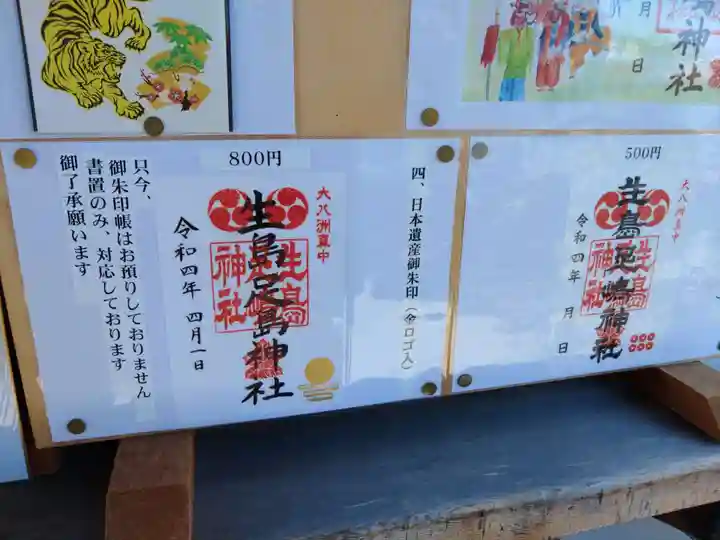 島神社
月
日
800円
四、日本遺産御朱印（金ロゴ入）
大八洲真中
生島足島神社
生島
神社
令和四年 四月一日
只今、
御朱印帳はお預りしておりません
書置のみ、対応しております
御了承願います
500円
大八洲真中
生島足嶋神社
生島
神社
令和四年 月 日